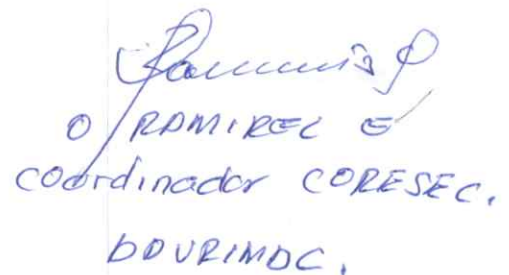 O RAMIREZ E
coordinador CORESEC.
DOURIMAC.